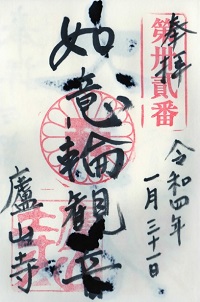 奉拝
第卅貳番
令和四年
一月三十一日
如意輪観音
廬山寺